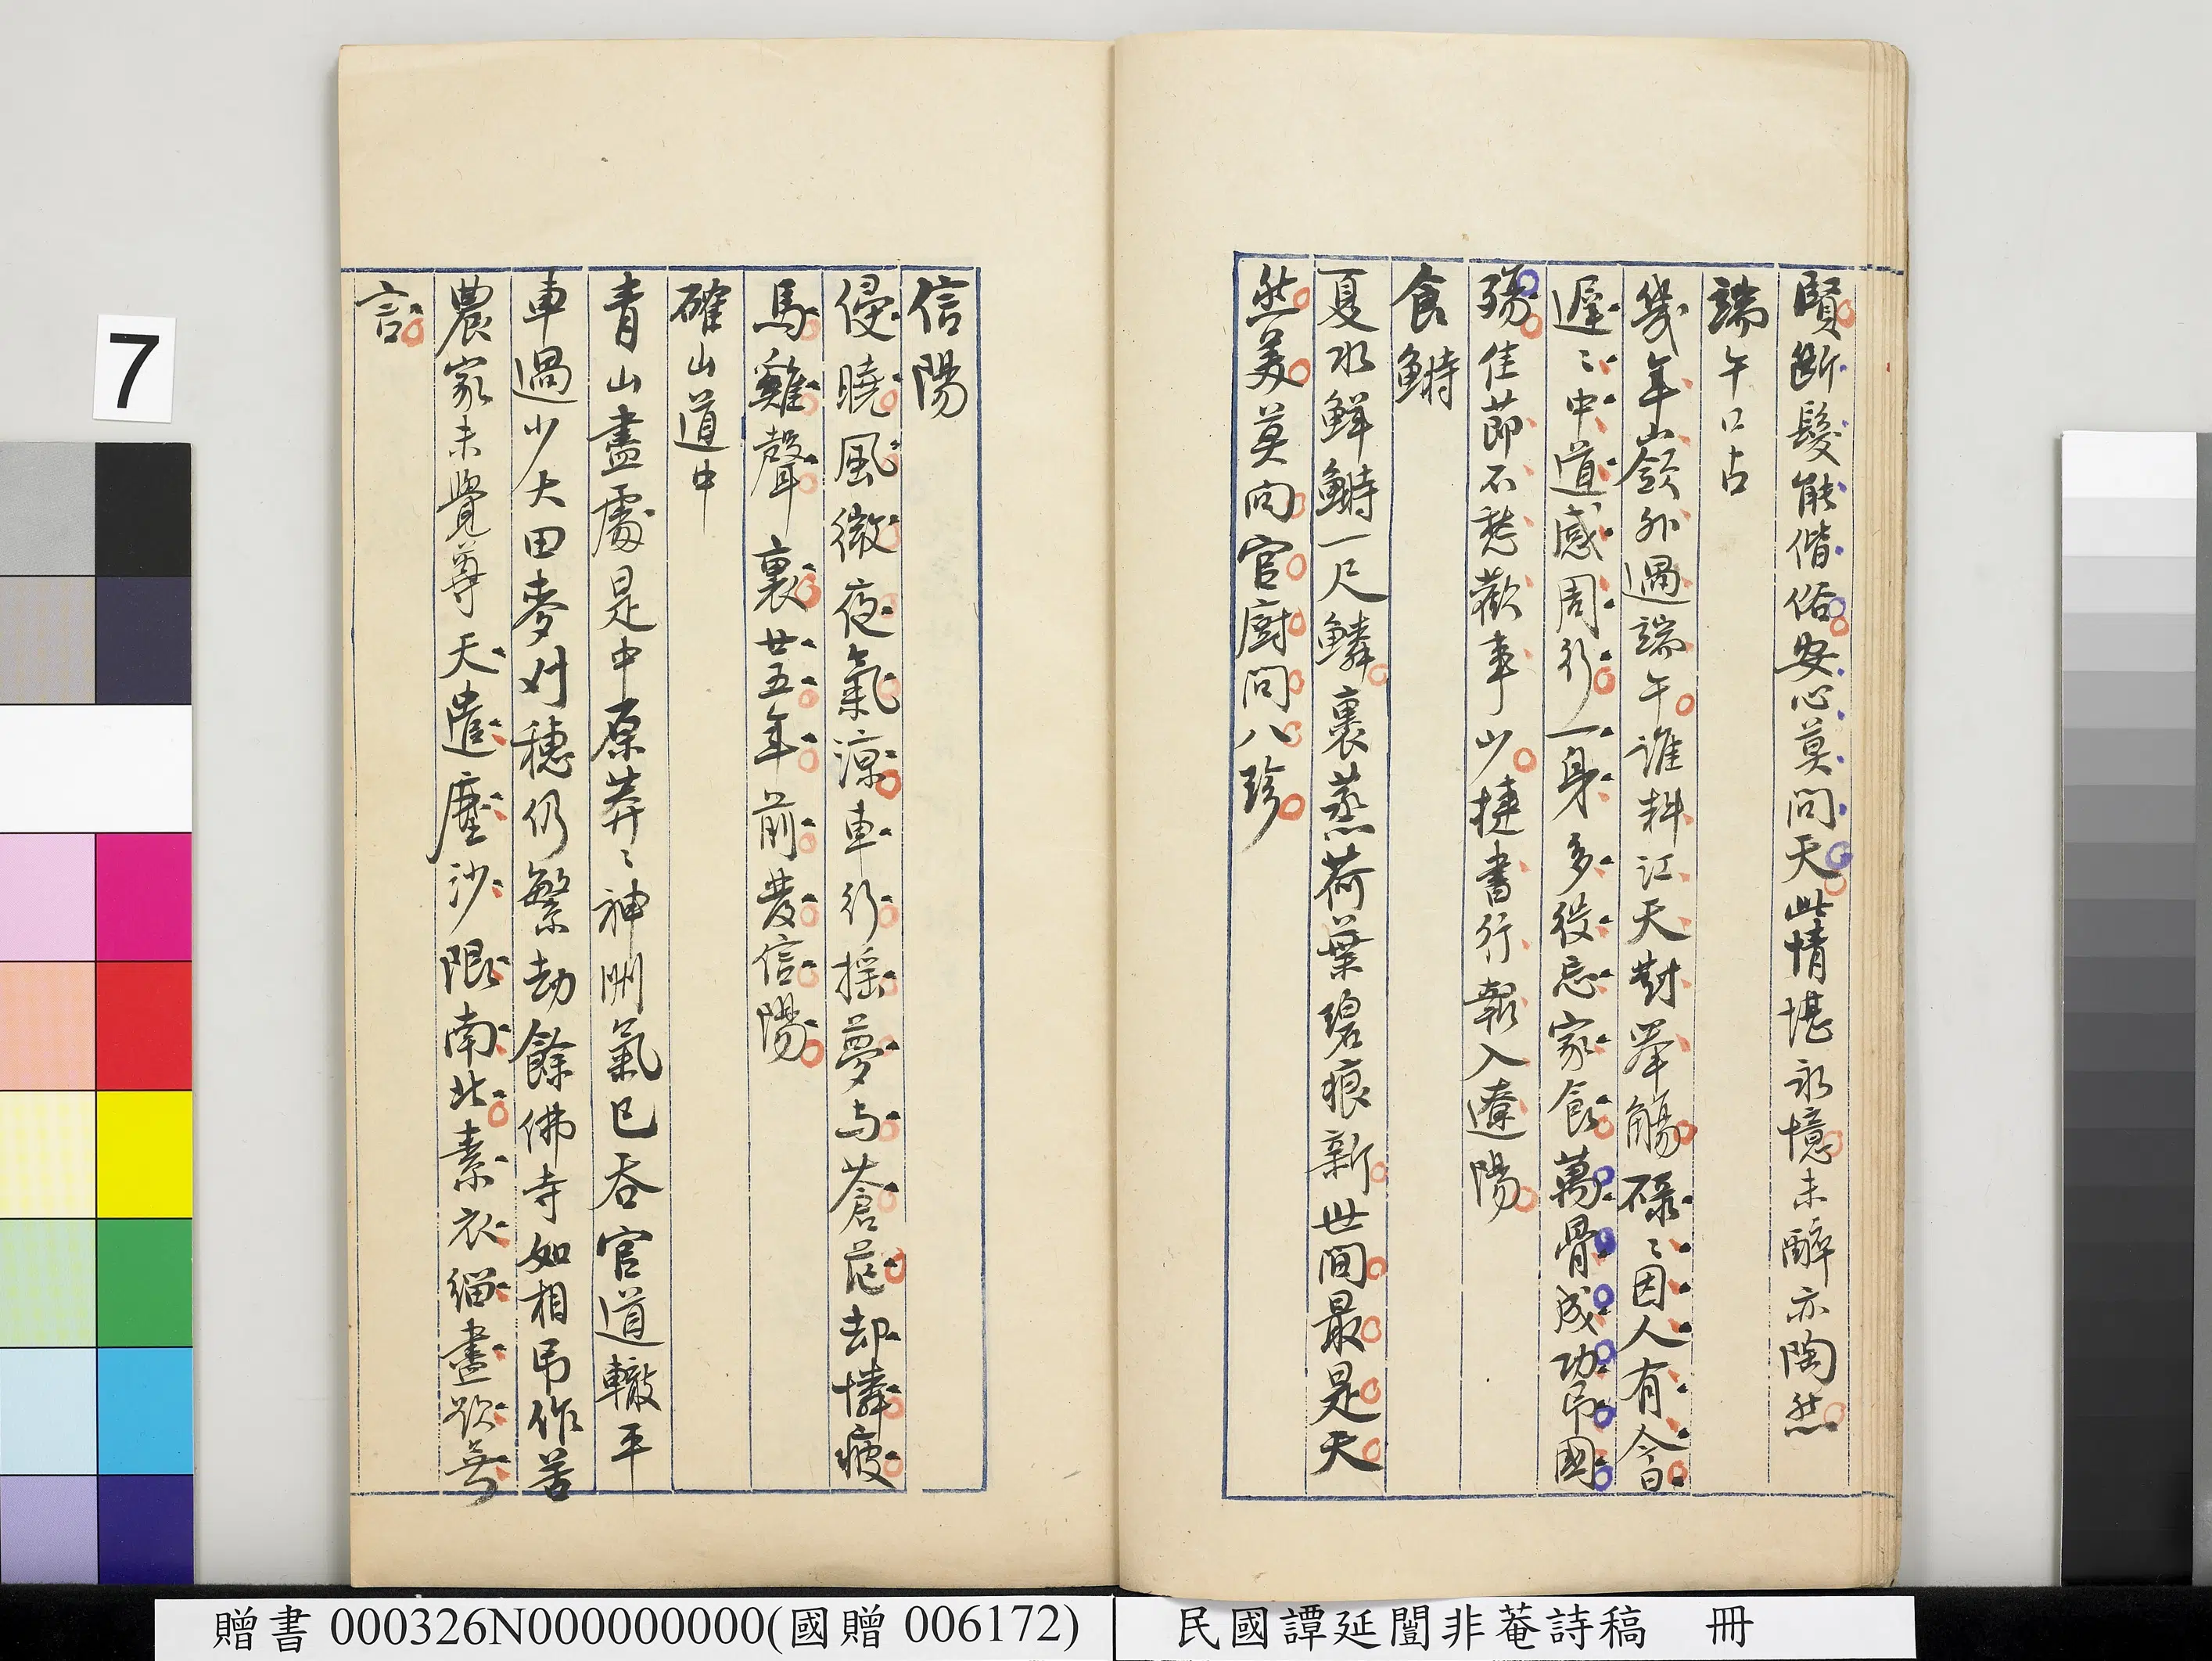 賢斷髮能偕俗安心莫問天此情堪永憶未醉亦陶然
端午口占
幾年嶺外過端午誰料江天對舉觴碌〻因人有今日
遲〻中道感周行一身多役忘家食萬骨成功弔國
殤佳節不愁歡事少捷書行報入遼陽
食鰣
夏水鮮鰣一尺鱗裹蒸荷葉碧痕新世間最是天
然美莫向官廚問八珍
信陽
侵曉風微夜氣涼車行搖夢与蒼茫却憐疲
馬雞聲裏廿五年前發信陽
確山道中
青山盡處是中原莽〻神州氣已吞官道轍平
車過少大田麥刈穗仍繁劫餘佛寺如相弔作苦
農家未覺尊天遣塵沙限南北素衣緇盡欲無
言
7
贈書 000326N000000000(國贈 006172)
民國譚延闓非菴詩稿 冊